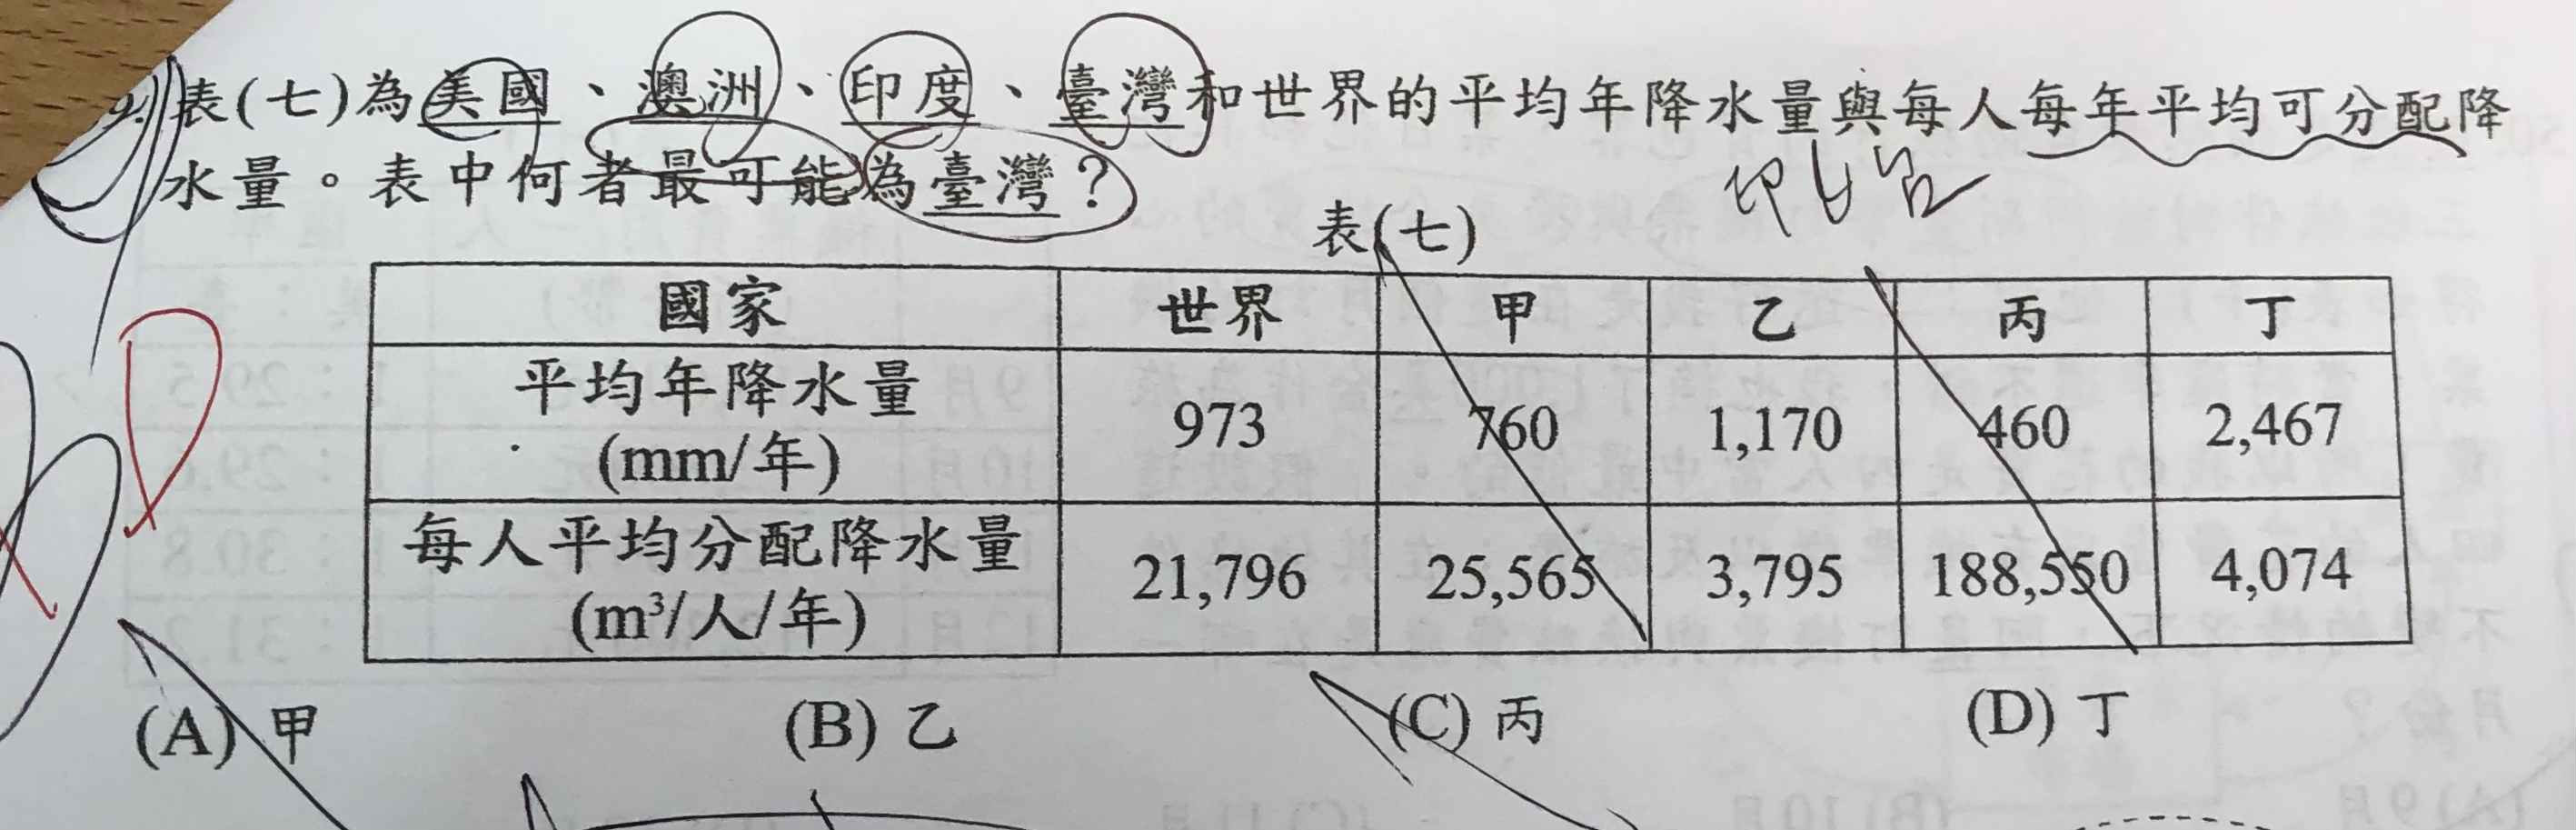 9. 表(七)為美國、澳洲、印度、臺灣和世界的平均年降水量與每人每年平均可分配降
水量。表中何者最可能為臺灣？
印
表(七)
國家 世界 甲 乙 丙 丁
平均年降水量
(mm/年) 973 760 1,170 460 2,467
每人平均分配降水量
(m³/人/年) 21,796 25,565 3,795 188,550 4,074
(A) 甲 (B) 乙 (C) 丙 (D) 丁
D